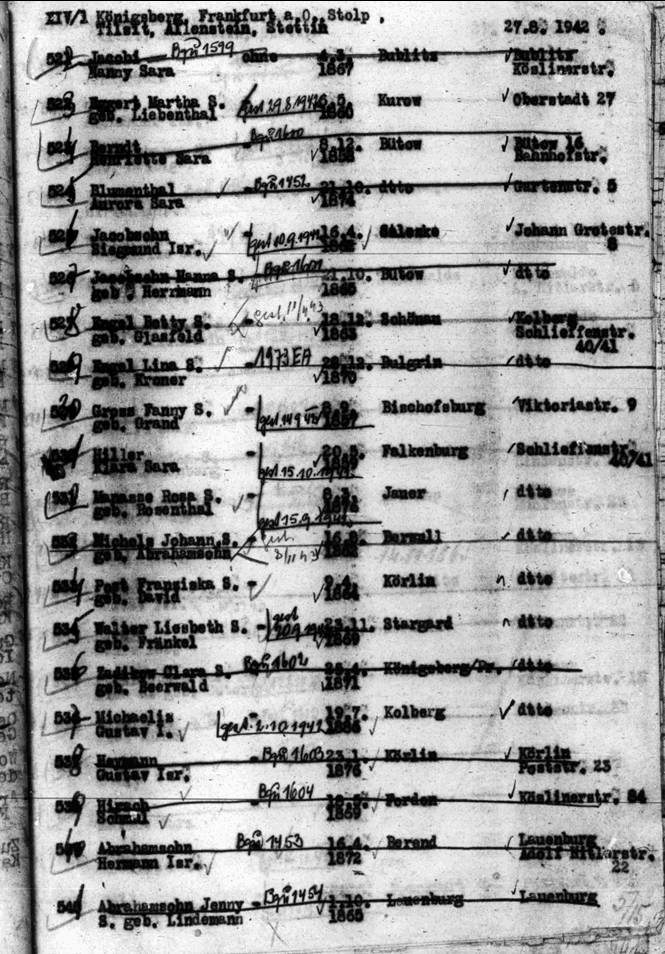 XIV/1 Königsberg, Frankfurt a.O. Stolp,
Tilsit, Allenstein, Stettin 27.8. 1942.
Jacobi Bqu 1599 ohne 4.3. Bublitz Bublitz
Nanny Sara 1867 Köslinerstr.
Eggert Martha S. gest 29.8.1942 5. Kurow Oberstadt 27
geb. Liebenthal
Berndt - Bqu 1600 8.12. Bütow Bütow 16
Henriette Sara 1858 Bahnhofstr.
524 Blumenthal - Bqu 1452 21.10. dtto Gartenstr. 5
Aurora Sara 1874
Jacobsohn - gest 10.9.1942 16.4. Johann Grotestr.
Siegmund Isr. 8
Jacobsohn Hanna S. - Bqu 1601 21.10. Bütow dtto
geb. Herrmann 1865
Engel Betty S. gest. 11/4.43 18.12. Schönau Kolberg
geb. Glasfeld 1863 Schlieffenstr.
40/41
Engel Lina S. - 1973 EA 28.12. Bulgrin dtto
geb. Kroner 1870
Gross Fanny S. - 8.9. Bischofsburg Viktoriastr. 9
geb. Grand gest. 14.9.42 1857
Hiller - 20.5. Falkenburg Schlieffenstr.
Klara Sara gest 15.10.1942 40/41
531 Manasse Rosa S. - 8.3. Jauer dtto
geb. Rosenthal 1874
gest 15.9.1942
Michels Johann.S. - gest. 16.8. Barwull dtto
geb. Abrahamsohn 3/11 43 1862
Pest Fransiska S. - 9.4. Körlin dtto
geb. David 1864
Walter Liesbeth S. - gest 23.11. Stargard dtto
geb. Fränkel 1869
Zadikow Clara S. Bqu 1602 26.4. Königsberg/Pr. dtto
geb. Beerwald 1871
Michaelis 19.7. Kolberg dtto
Gustav I. gest. 2.10.1942
Heymann - Bqu 1603 23.1. Körlin Körlin
Gustav Isr. 1876 Poststr. 23
Hirsch - Bqu 1604 Fordon Köslinerstr. 84
1869
Abrahamsohn Bqu 1453 16.4. Berend Lauenburg
Hermann Isr. 1872 Adolf Hitlerstr.
22
Abrahamsohn Jenny - Bqu 1454 1.10. Lauenburg Lauenburg
S. geb. Lindemann 1865